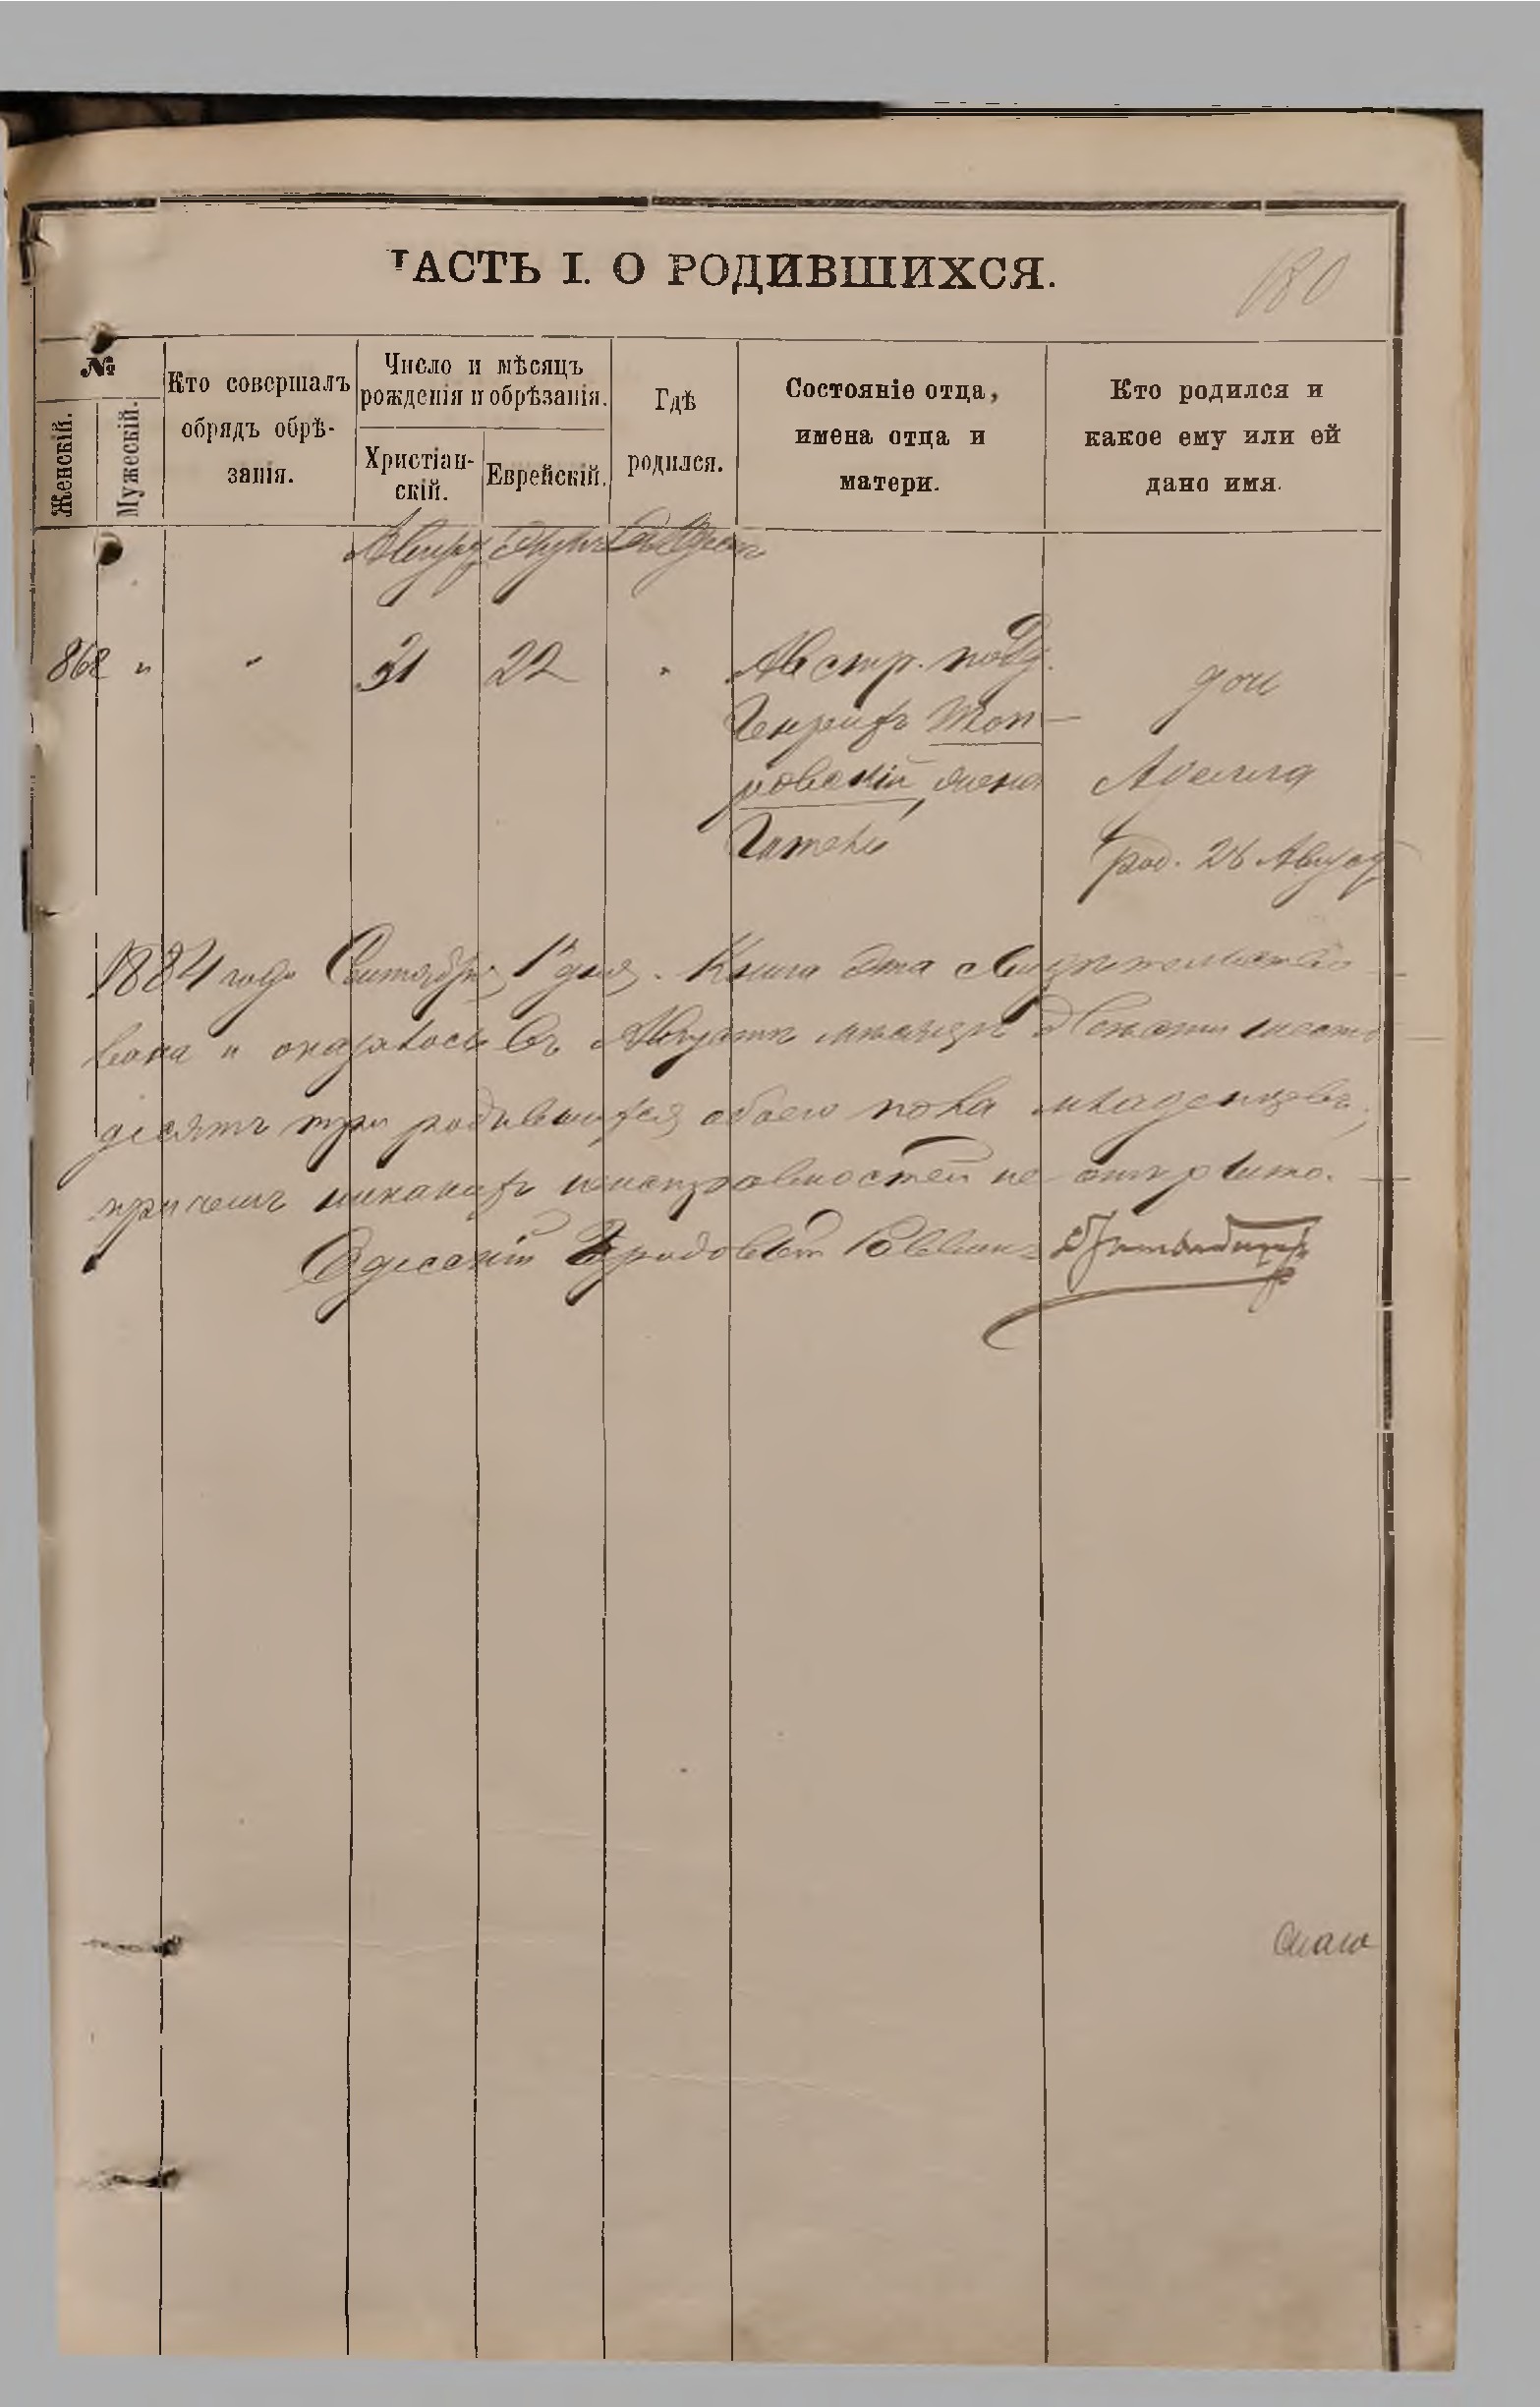 ЧАСТЬ I. О РОДИВШИХСЯ.
180
№
Женскій.
Мужескій.
Кто совершалъ
обрядъ обрѣ-
занія.
Число и мѣсяцъ
рожденія и обрѣзанія.
Христіан-
скій.
Еврейскій.
Гдѣ
родился.
Состояніе отца,
имена отца и
матери.
Кто родился и
какое ему или ей
дано имя.
Август
868 " " 31 22 " Австр. подд.
Генрихъ
ровскій, жена
доч
Аделла
род. 26 Август
1884 года Сентября 1 дня. Книга эта свидѣтельство-
вана и оказалось въ Августѣ мѣсяцѣ двѣсти шесть-
десятъ три родившихся обоего пола младенцевъ,
причемъ никакихъ неисправностей не открыто.
Одесскій Городовой Раввинъ